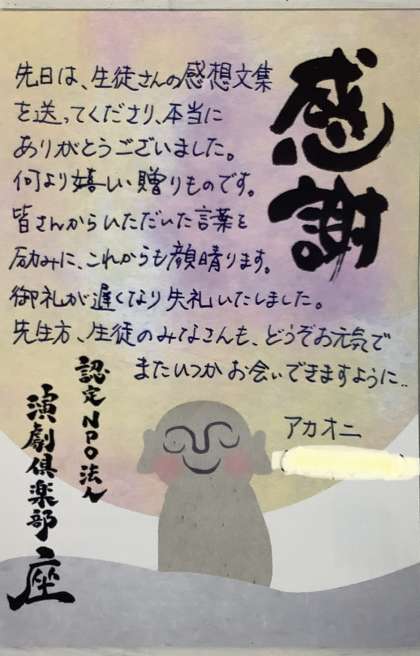 感謝
先日は、生徒さんの感想文集
を送ってくださり、本当に
ありがとうございました。
何より嬉しい贈りものです。
皆さんからいただいた言葉を
励みに、これからも顔晴ります。
御礼が遅くなり失礼いたしました。
先生方、生徒のみなさんも、どうぞお元気で
またいつかお会いできますように..
アカオニ
認定NPO法人
演劇倶楽部
座